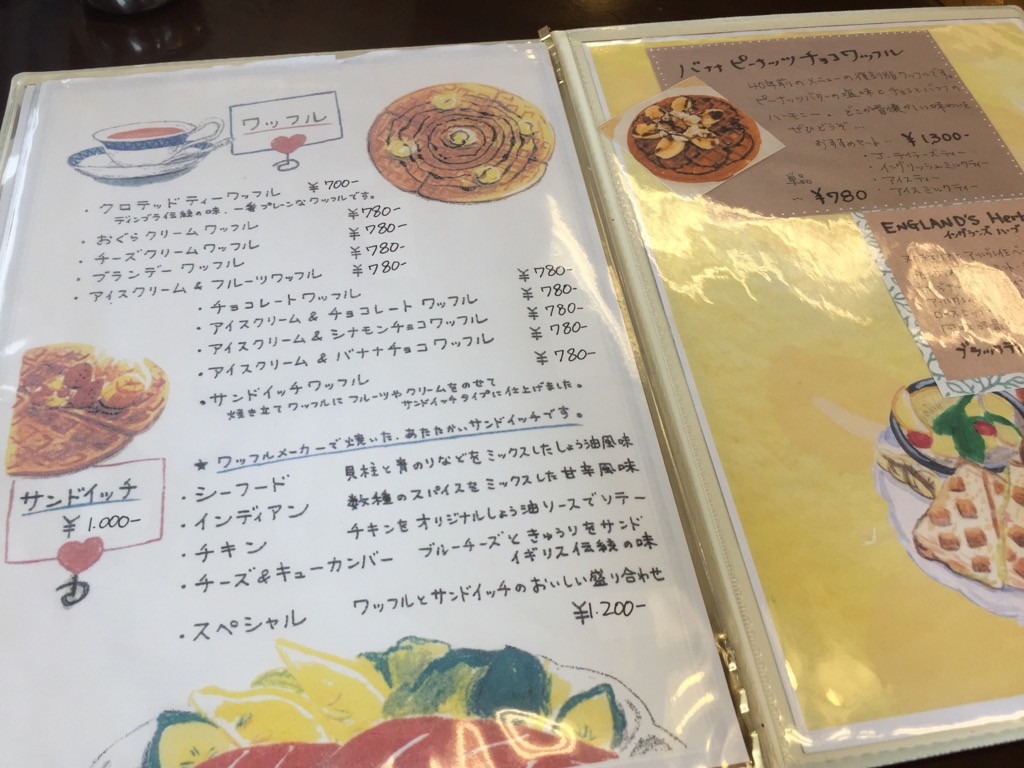 ワッフル
・クロテッドティーワッフル ¥700-
ディンブラ伝統の味、一番プレーンなワッフルです。
・おぐらクリームワッフル ¥780-
・チーズクリームワッフル ¥780-
・ブランデーワッフル ¥780-
・アイスクリーム&フルーツワッフル ¥780-
・チョコレートワッフル ¥780-
・アイスクリーム&チョコレートワッフル ¥780-
・アイスクリーム&シナモンチョコワッフル ¥780-
・アイスクリーム&バナナチョコワッフル ¥780-
・サンドイッチワッフル ¥780-
焼き立てワッフルにフルーツやクリームをのせて
サンドイッチタイプに仕上げました。
サンドイッチ
¥1.000-
★ワッフルメーカーで焼いた、あたたかいサンドイッチです。
・シーフード 貝柱と青のりなどをミックスしたしょう油風味
・インディアン 数種のスパイスをミックスした甘辛風味
・チキン チキンをオリジナルしょう油ソースでソテー
・チーズ&キューカンバー ブルーチーズときゅうりをサンド
イギリス伝統の味
・スペシャル ワッフルとサンドイッチのおいしい盛り合わせ
¥1.200-
バナナピーナッツチョコワッフル
40年前のメニューの復刻版ワッフルです。
ピーナッツバターの塩味とチョコとバナナの
ハーモニー。どこか昔懐かしい味わいを
ぜひどうぞ…
おすすめセット… ¥1,300-
・アイスティー
・イングリッシュミルクティー
・アイスミルクティー
単品
… ¥780
ENGLAND'S Herb
イングランズ ハーブ